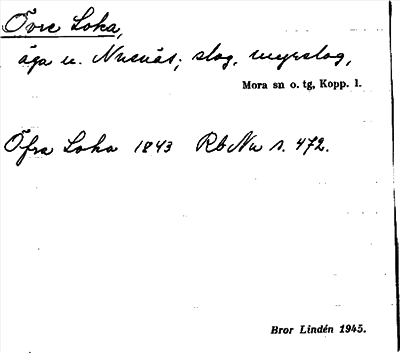 Övre Loka,
äga u. Nusnäs; slog, myrslog,
Mora sn o. tg, Kopp. l.
Öfra Loka 1843 RbNu s. 472.
Bror Lindén 1945.